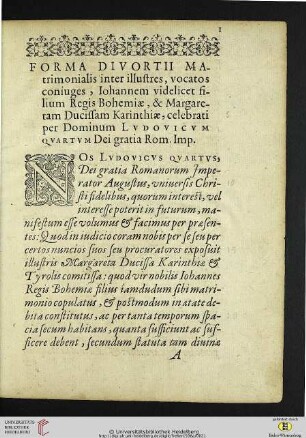 1
FORMA DIVORTII MA-
trimonialis inter illustres, vocatos
coniuges, Iohannem videlicet fi-
lium Regis Bohemiæ, & Margare-
tam Ducissam Karinthiæ, celebrati
per Dominum LVDOVICVM
QVARTVM Dei gratia Rom. Imp.
NOS LVDOVICVS QVARTVS,
Dei gratia Romanorum Impe-
rator Augustus, vniuersis Chri-
sti fidelibus, quorum interest, vel
interesse poterit in futurum, ma-
nifestum esse volumus & facimus per præsen-
tes: Quod in iudicio coram nobis per se seu per
certos nuncios suos seu procuratores exposuit
illustris Margareta Ducissa Karinthiæ &
Tyrolis comitissa: quod vir nobilis Iohannes
Regis Bohemiæ filius iamdudum sibi matri-
monio copulatus, & postmodum in ætate de-
bita constitutus, ac per tanta temporum spa-
cia secum habitans, quanta sufficiunt ac suf-
ficere debent, secundum statuta tam diuinæ
A
UNIVERSITÄTS-
BIBLIOTHEK
HEIDELBERG
© Universitätsbibliothek Heidelberg
gefördert durch